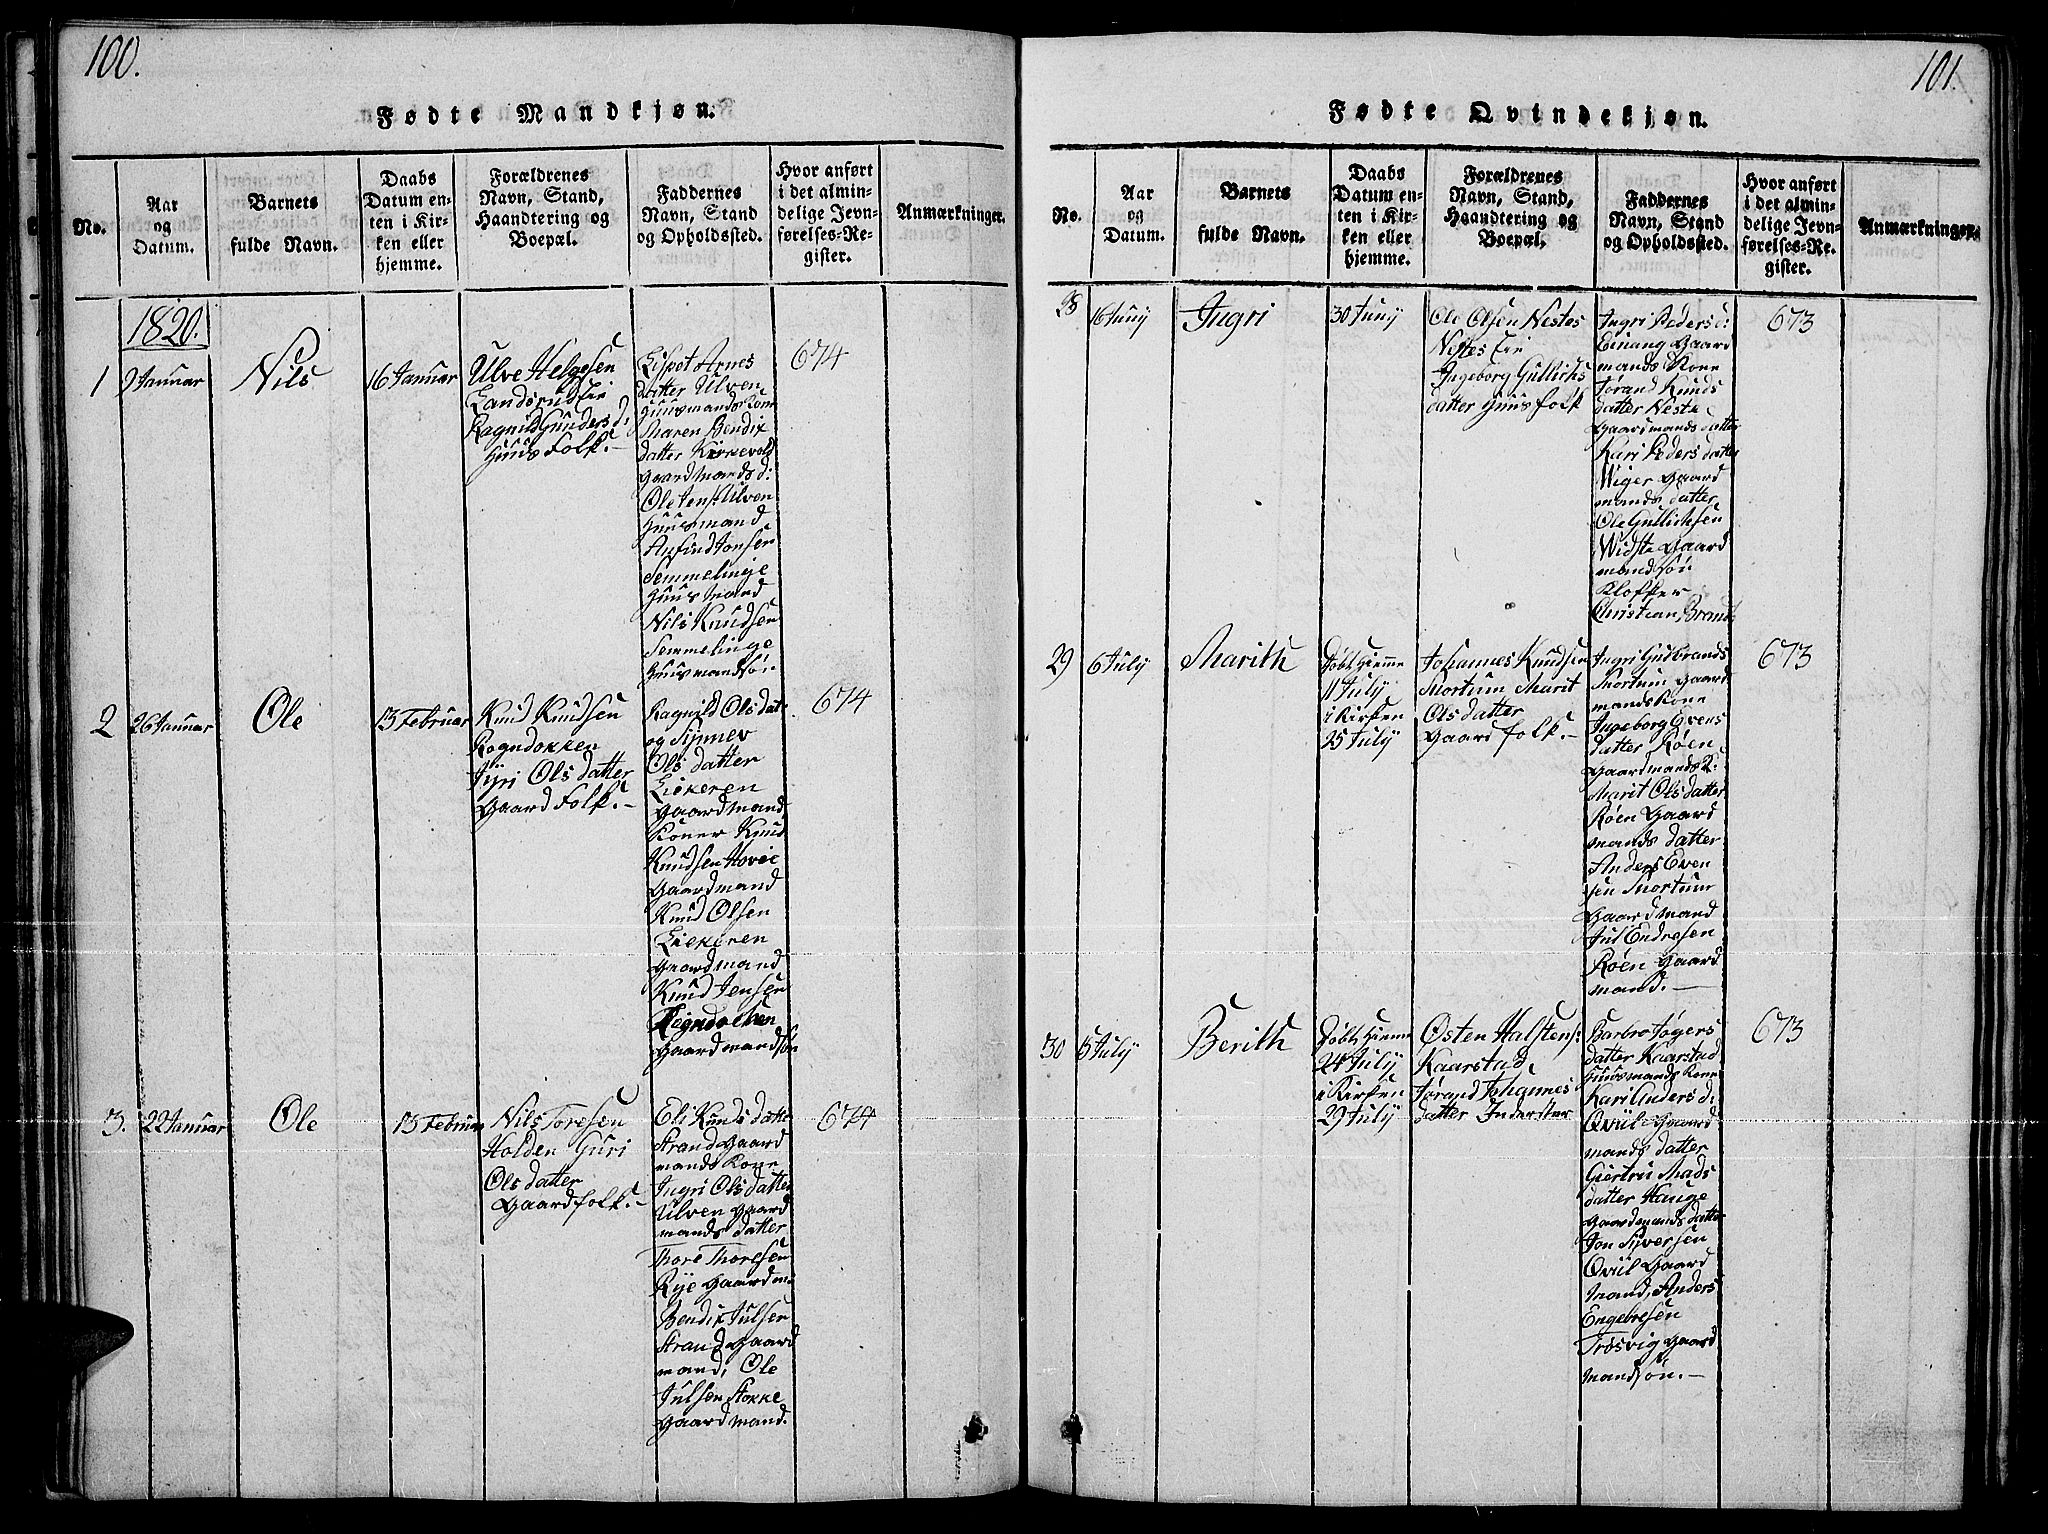 100.
Fødte Mandkjøn.
No.
Aar
og
Datum.
Barnets
fulde Navn.
Daabs
Datum en-
ten i Kir-
ken eller
hjemme.
Forældrenes
Navn, Stand,
Haandtering og
Boepæl.
Faddernes
Navn, Stand
og Opholdssted.
Hvor anført
i det almin-
delige Jevn-
førelses-Re-
gister.
Anmærkninger.
1820.
1
9 Januar
Nils
16 Januar
Ulve Helgesen
Landsrudeie
Ragnild Gunders d:
Huus Folk.-
Lispet Arnes
datter Ulven
Huusmands Kone
Maren Bendix
datter Kirkevold
Gaardmands d:
Ole Jens: Ulven
Huusmand
Anfind Jonsen
Semmelinge
Huusmand
Nils Knudsen
Semmelinge
Huusmandsø:
674
2
26 Januar
Ole
13 Februar
Knud Knudsen
Rogndokken
Jyri Olsdatter
Gaard Folk.-
Ragnild Olsdat
og Synnev
Olsdatter
Liekeren
Gaardmand
Koner Knud
Knudsen Hovie
Gaardmand
Knud Olsen
Liekeren
Gaardmand
Knud Jensen
Rogndocken
Gaardmandsøn
674
3.
22 Januar
Ole
13 Februar
Nils Toresen
Holden Guri
Olsdatter
Gaardfolk.-
Eli Knudsdatte
Strand Gaard
mands Kone
Ingri Olsdatter
Ulven Gaard
mands datter
Thore Thoresen
Rye Gaardm:
Bendix Julsen
Strand Gaard
mand, Ole
Julsen Stokke
Gaardmand.
674
101.
Fødte Qvindekjøn.
No.
Aar
og
Datum.
Barnets
fulde Navn.
Daabs
Datum en-
ten i Kir-
ken eller
hjemme.
Forældrenes
Navn, Stand,
Haandtering og
Boepæl.
Faddernes
Navn, Stand
og Opholdssted.
Hvor anført
i det almin-
delige Jevn-
førelses-Re-
gister.
Anmærkninger.
28
16 Juny
Ingri
30 Juny
Ole Olsen Nestes
Nestes Eie
Ingeborg Gullichs
datter Huusfolk
Ingri Peders d:
Einang Gaard
mands Kone
Jørand Knuds
datter Neste
Gaardmands datter
Kari Peders datter
Wiger Gaard
mands datter
Ole Gullichsen
Widste Gaard
mandsø:
Klokker
Christian Brandt
673
29
6 July
Marith
Døbt hiemme
11 July
i Kirken
25 July
Johannes Knudsen
Mortum Marit
Olsdatter
Gaardfolk.-
Ingri Gulbrands
Mortum Gaard
mands Kone
Ingeborg Evens
datter Røen
Gaardmands K:
Marit Olsdatter
Røen Gaard
mands datter
Anders Even
sen Mortum
Gaardmand
Jul Endresen
Røen Gaard
mand.-
673
30
15 July
Berith
Døbt hiemme
21 July
i Kirken
29 July
Østen Halstens:
Kaarstad
Jørand Johannes
datter Inderster
Barbro Jøgers
datter Kaarstad
Huusmands Kone
Kari Anders d:
Qviil Gaard
mands datter
Giertru Mads
datter Hauge
Gaardmands datter
Jon Siversen
Qviil Gaard
mand, Anders
Engebresen
Trøsvig Gaard
mandsøn.-
673